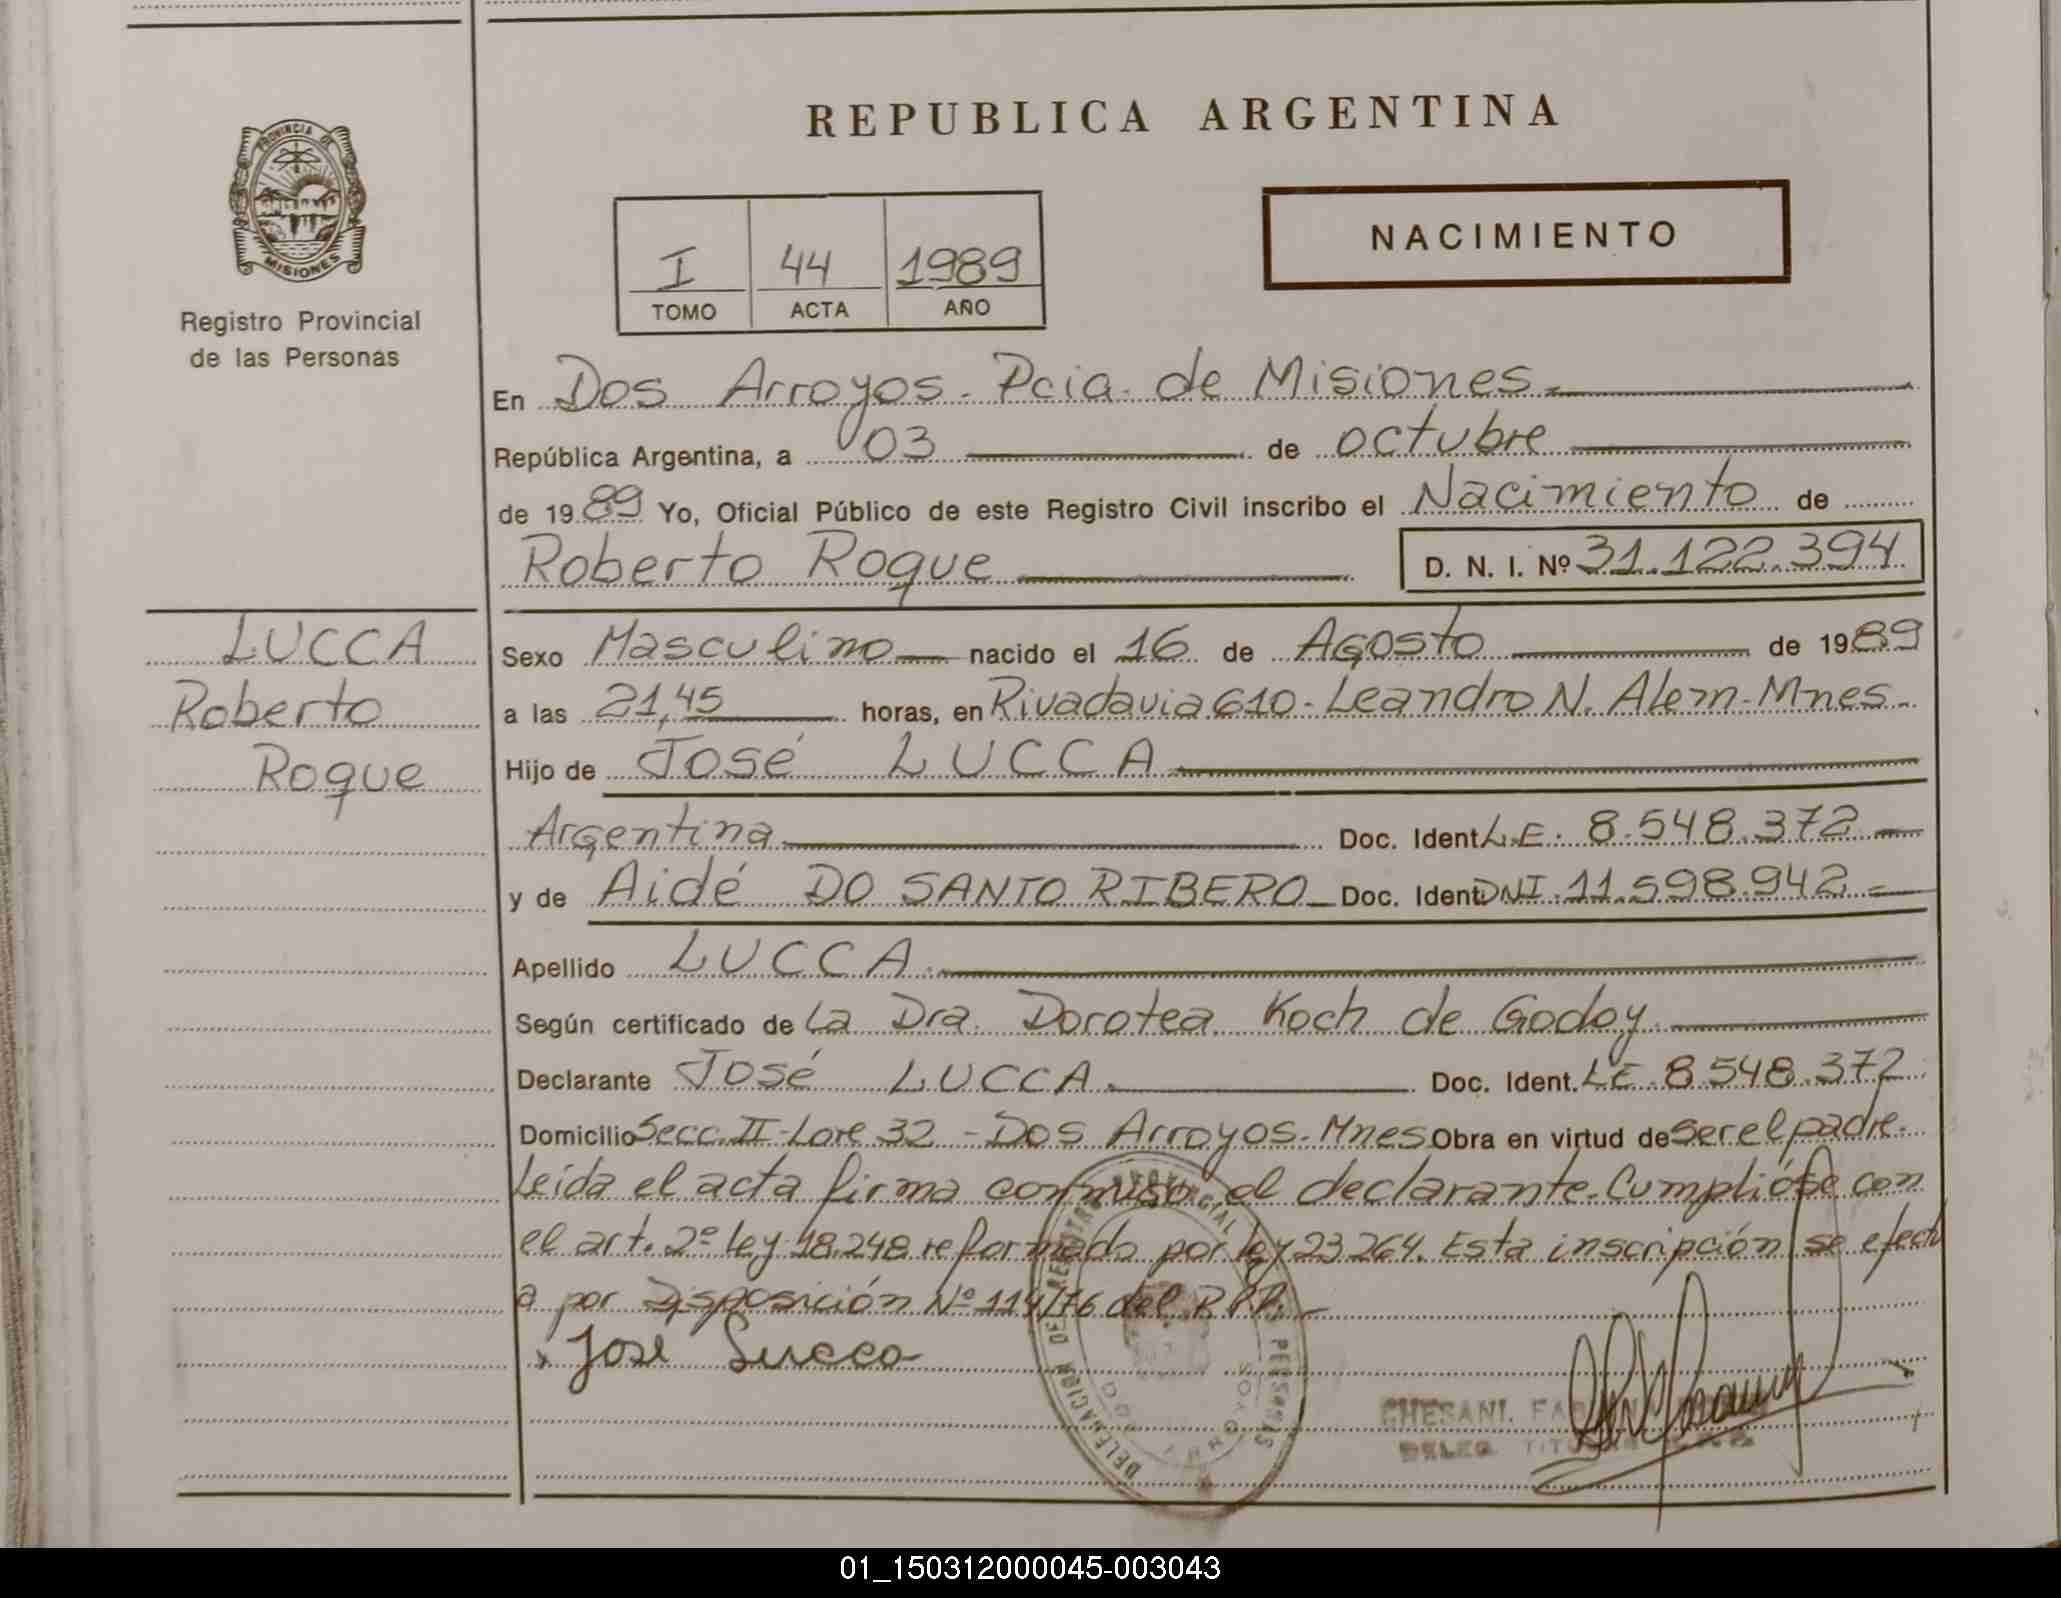 REPUBLICA ARGENTINA
PROVINCIA DE
MISIONES
Registro Provincial
de las Personas
NACIMIENTO
I 44 1989
TOMO ACTA AÑO
En Dos Arroyos - Pcia. de Misiones.
República Argentina, a 03 de octubre
de 1989 Yo, Oficial Público de este Registro Civil inscribo el Nacimiento de
Roberto Roque D. N. I. Nº 31.122.394
LUCCA
Roberto
Roque
Sexo Masculino nacido el 16 de Agosto de 1989
a las 21,45 horas, en Rivadavia 610 - Leandro N. Alem - Mnes.
Hijo de José LUCCA
Argentina Doc. Ident. L.E. 8.548.372
y de Aidé DO SANTO RIBERO Doc. Ident. DNI 11.598.942
Apellido LUCCA
Según certificado de La Dra. Dorotea Koch de Godoy
Declarante José LUCCA. Doc. Ident. LE 8.548.372
Domicilio Secc. II - Lote 32 - Dos Arroyos - Mnes Obra en virtud de ser el padre.
Leída el acta firma conmigo el declarante. Cumplióse con
el art. 2º ley 18.248 reformado por ley 23.264. Esta inscripción se efectú
a por Disposición Nº 114/76 del R.P.P.
José Lucca
DELEGACION DEL REGISTRO PROVINCIAL DE LAS PERSONAS
DOS ARROYOS
GHESANI, FA
DELEG. TITULAR
01_150312000045-003043